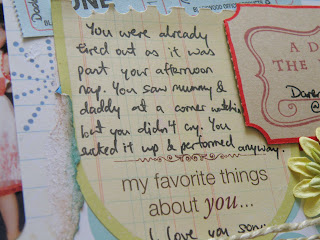 ONE
You were already
tired out as it was
past your afternoon
nap. You saw mummy &
daddy at a corner watching
but you didn't cry. You
sucked it up & performed anyway.
my favorite things
about you...
I love you
A D
THE
Daren
@